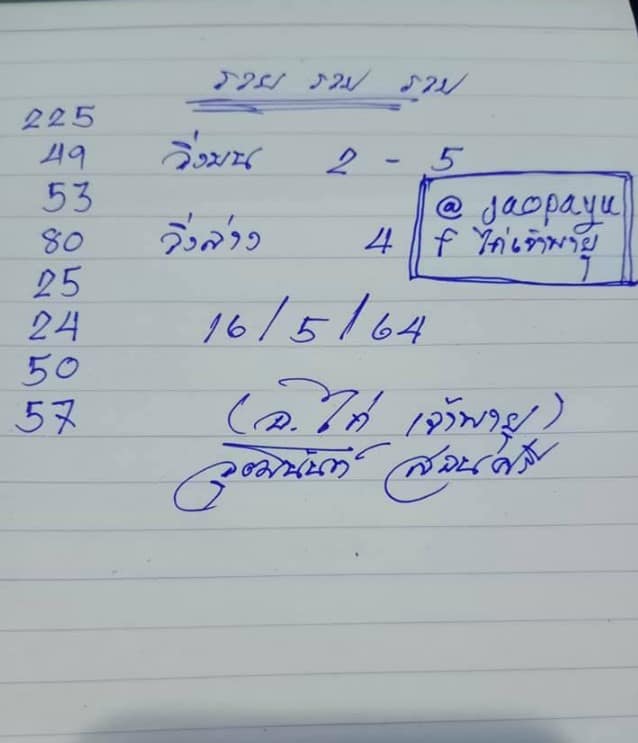 รวย รวย รวย
225
49 วิ่งบน 2 - 5
53
@ jaopayu
80 วิ่งล่าง 4
f ไก่เจ้าพายุ
25
24 16/5/64
50
57 (อ. ไก่ เจ้าพายุ)